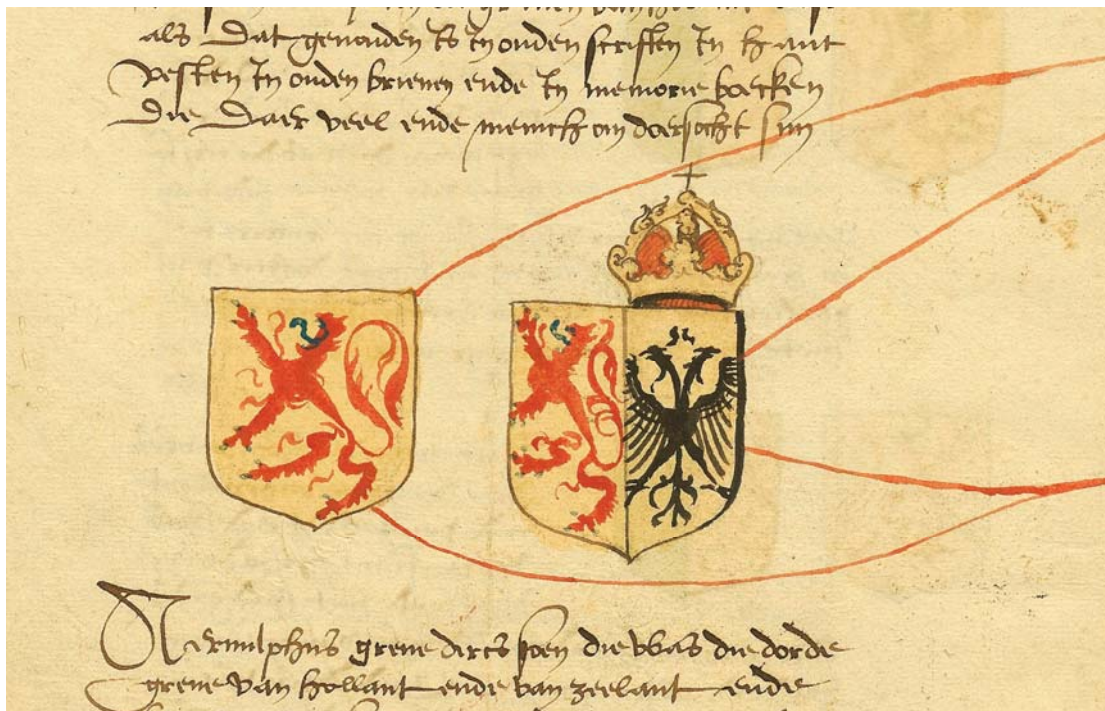 als dat gehouden is in ouden scriften in hant
vesten in ouden brieuen ende in memorie boecken
die daer veel ende menich om doersocht sijn
Aernulphus greue dircs soen die was die dorde
greue van hollant ende van zeelant ende